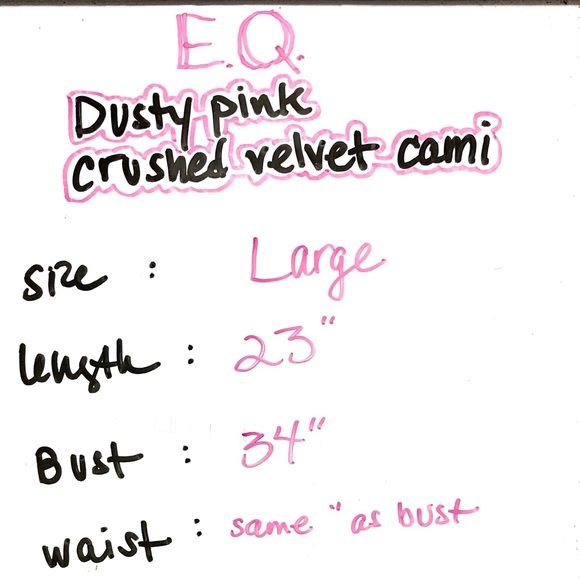 E.Q.
Dusty pink
crushed velvet cami
size : Large
length : 23"
Bust : 34"
waist : same " as bust